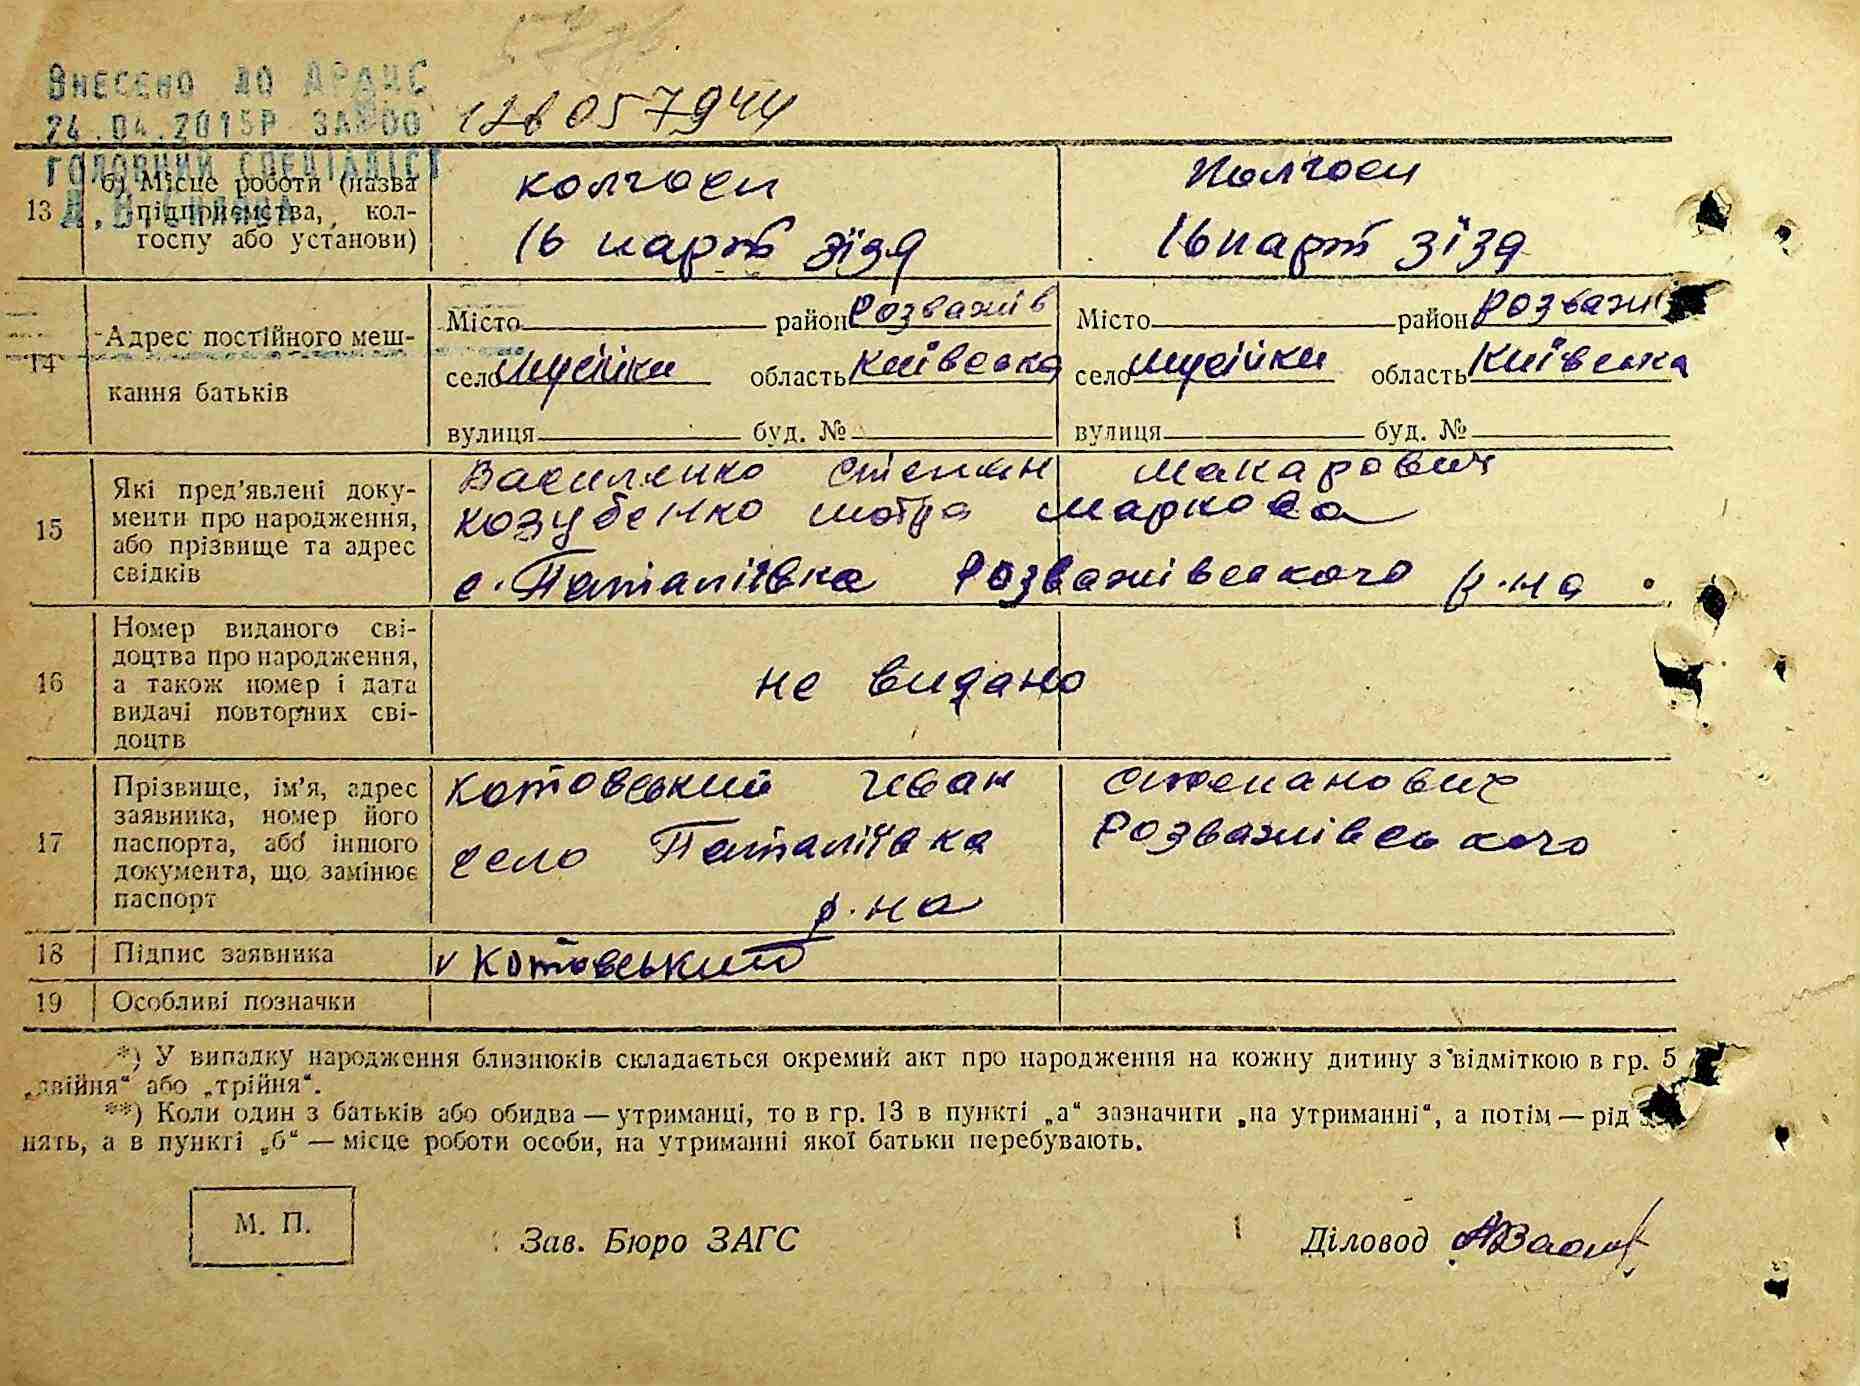 ВНЕСЕНО ДО ДРАЦС
24.04.2015Р ЗА №00
ГОЛОВНИЙ СПЕЦІАЛІСТ
057944
13 б) Місце роботи (назва підприємства, колгоспу або установи)
колгосп
16 парт зїзд
колгосп
16 парт зїзд
14 Адрес постійного мешкання батьків
Місто район Розважів
село Мусійки область Київська
вулиця буд. №
Місто район Розважів
село Мусійки область Київська
вулиця буд. №
15 Які пред'явлені документи про народження, або прізвище та адрес свідків
Василенко Степан Макарович
Козубенко Мотря Маркова
с. Наталіївка Розважівського р-на
16 Номер виданого свідоцтва про народження, а також номер і дата видачі повторних свідоцтв
не видано
17 Прізвище, ім'я, адрес заявника, номер його паспорта, або іншого документа, що замінює паспорт
Котовський Іван Степанович
село Наталіївка Розважівського
р-на
18 Підпис заявника
Котовський
19 Особливі позначки
*) У випадку народження близнюків складається окремий акт про народження на кожну дитину з відміткою в гр. 5
„двійня“ або „трійня“.
**) Коли один з батьків або обидва — утриманці, то в гр. 13 в пункті „а“ зазначити „на утриманні“, а потім — рід за-
нять, а в пункті „б“ — місце роботи особи, на утриманні якої батьки перебувають.
М. П.
Зав. Бюро ЗАГС
Діловод